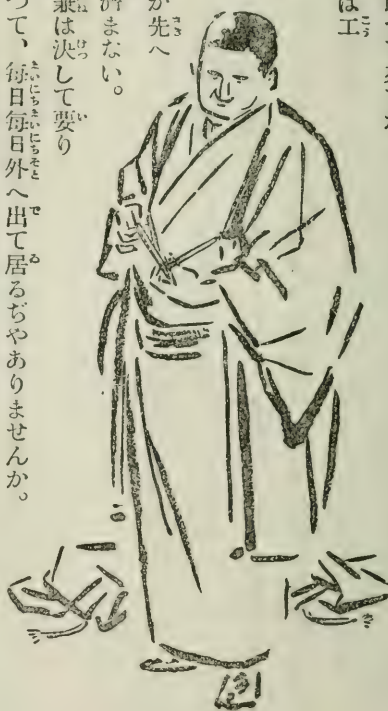 は工
が先へ
済まない。
兼は決して要り
つて、毎日毎日外へ出て居るぢやありませんか。